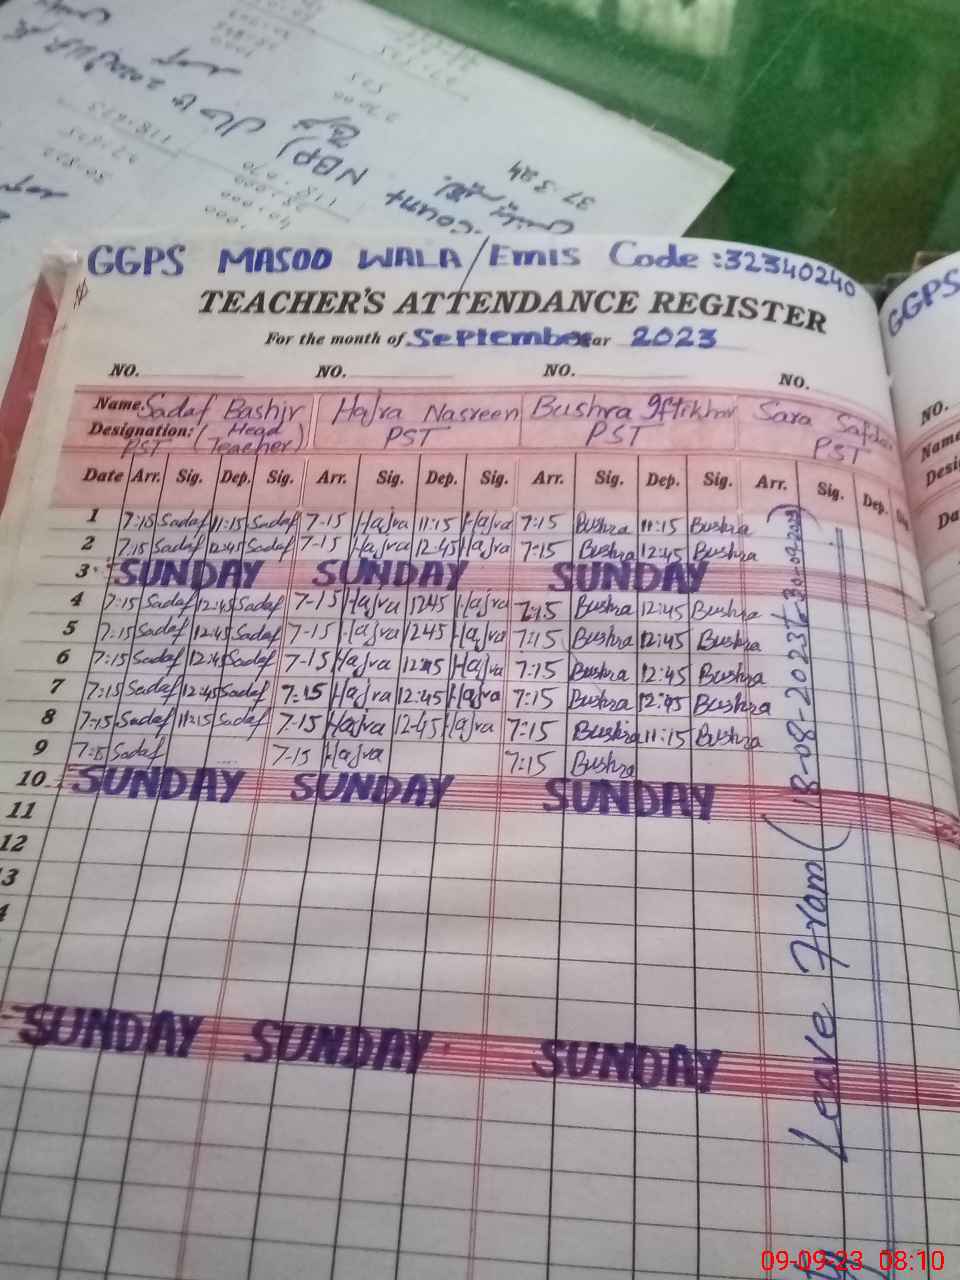 37-384
NBP)
Count
118.070
1.000
GGPS MASOO WALA/Emis Code:32340240
GGPS
TEACHER'S ATTENDANCE REGISTER
For the month of September 2023
NO. NO. NO. NO. NO.
Name: Sadaf Bashir Hajra Nasreen Bushra Iftikhar Sara Safdar
Designation: (Head PST PST PST
PST Teacher)
Date Arr. Sig. Dep. Sig. Arr. Sig. Dep. Sig. Arr. Sig. Dep. Sig. Arr. Sig. Dep.
1 7:15 Sadaf 11:15 Sadaf 7-15 Hajra 11:15 Hajra 7:15 Bushra 11:15 Bushra
2 7:15 Sadaf 12:45 Sadaf 7-15 Hajra 12:45 Hajra 7:15 Bushra 12:45 Bushra
3 SUNDAY SUNDAY SUNDAY
4 7:15 Sadaf 12:45 Sadaf 7-15 Hajra 1245 Hajra 7:15 Bushra 12:45 Bushra
5 7:15 Sadaf 12:45 Sadaf 7-15 Hajra 1245 Hajra 7:15 Bushra 12:45 Bushra
6 7:15 Sadaf 12:45 Sadaf 7-15 Hajra 12:45 Hajra 7:15 Bushra 12:45 Bushra
7 7:15 Sadaf 12:45 Sadaf 7:15 Hajra 12:45 Hajra 7:15 Bushra 12:45 Bushra
8 7:15 Sadaf 11:15 Sadaf 7-15 Hajra 12-45 Hajra 7:15 Bushra 11:15 Bushra
9 7:15 Sadaf 7-15 Hajra 7:15 Bushra
10 SUNDAY SUNDAY SUNDAY
11
12
3
4
SUNDAY SUNDAY SUNDAY
Leave From (18-08-2023 to 30-09-2023)
09-09-23 08:10